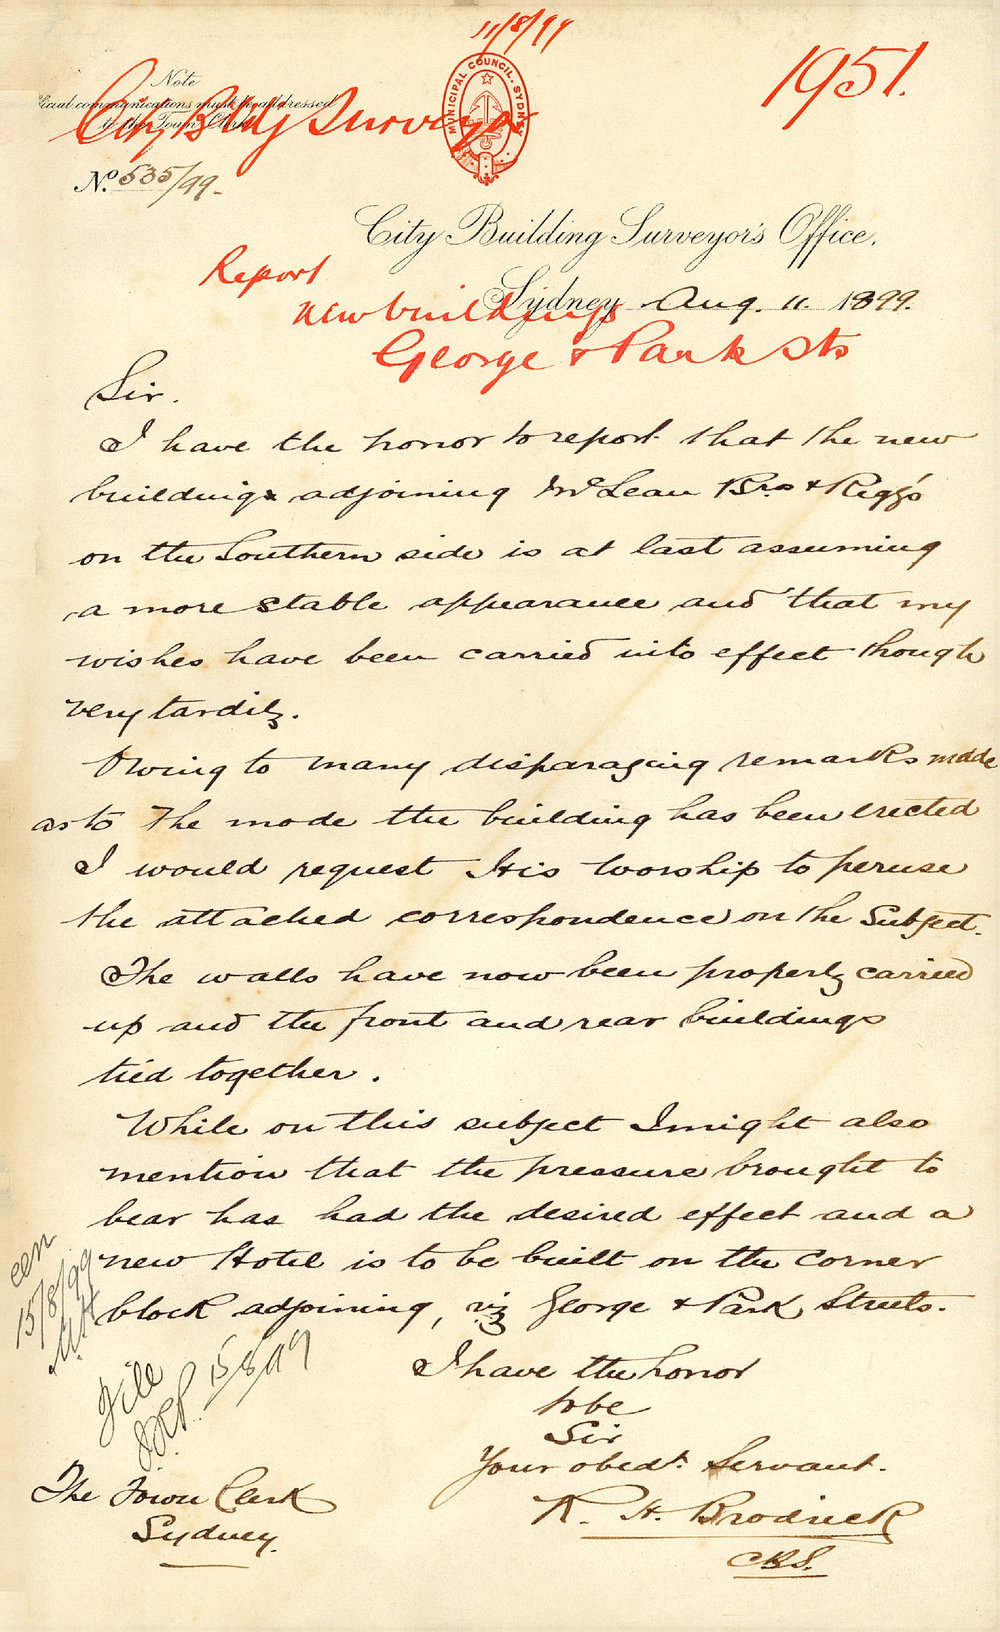 11/8/99
1951.
MUNICIPAL COUNCIL. SYDNEY
Note
icial communications must be addressed
to the Town Clerk
City Bldg Surveyor
No. 535/99.
City Building Surveyor's Office,
Report
Sydney Aug. 11. 1899.
New buildings
George & Park Sts
Sir.
I have the honor to report that the new
building adjoining McLean Bros & Rigg's
on the Southern side is at last assuming
a more stable appearance and that my
wishes have been carried into effect though
very tardily.
Owing to many disparaging remarks made
as to The mode the building has been erected
I would request His Worship to peruse
the attached correspondence on the Subject.
The walls have now been properly carried
up and the front and rear buildings
tied together.
While on this subject I might also
mention that the pressure brought to
bear has had the desired effect and a
new Hotel is to be built on the corner
block adjoining, viz George & Park Streets.
een
15/8/99
File
15/8/99
I have the honor
to be
Sir
Your obedt. Servant.
The Town Clerk
Sydney.
R. H. Brodrick
CBS.